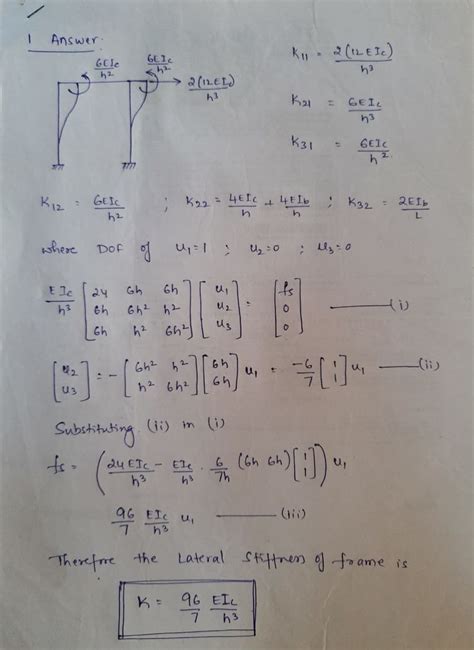 1 Answer:
6EIc/h² 6EIc/h²
2(12EI)/h³
K11 = 2(12EIc)/h³
K21 = 6EIc/h²
K31 = 6EIc/h².
K12 = 6EIc/h² ; K22 = 4EIc/h + 4EIb/h ; K32 = 2EIb/L
where DOF of u1=1 ; u2=0 ; u3=0
EIc/h³ [24 6h 6h; 6h 6h² h²; 6h h² 6h²] [u1; u2; u3] = [fs; 0; 0] —— (i)
[u2; u3] = - [6h² h²; h² 6h²] [6h; 6h] u1 = -6/7 [1; 1] u1 —— (ii)
Substituting (ii) in (i)
fs = (24EIc/h³ - EIc/h³ . 6/7h (6h 6h) [1; 1]) u1
96/7 EIc/h³ u1 —— (iii)
Therefore the Lateral Stiffness of frame is
K = 96/7 EIc/h³